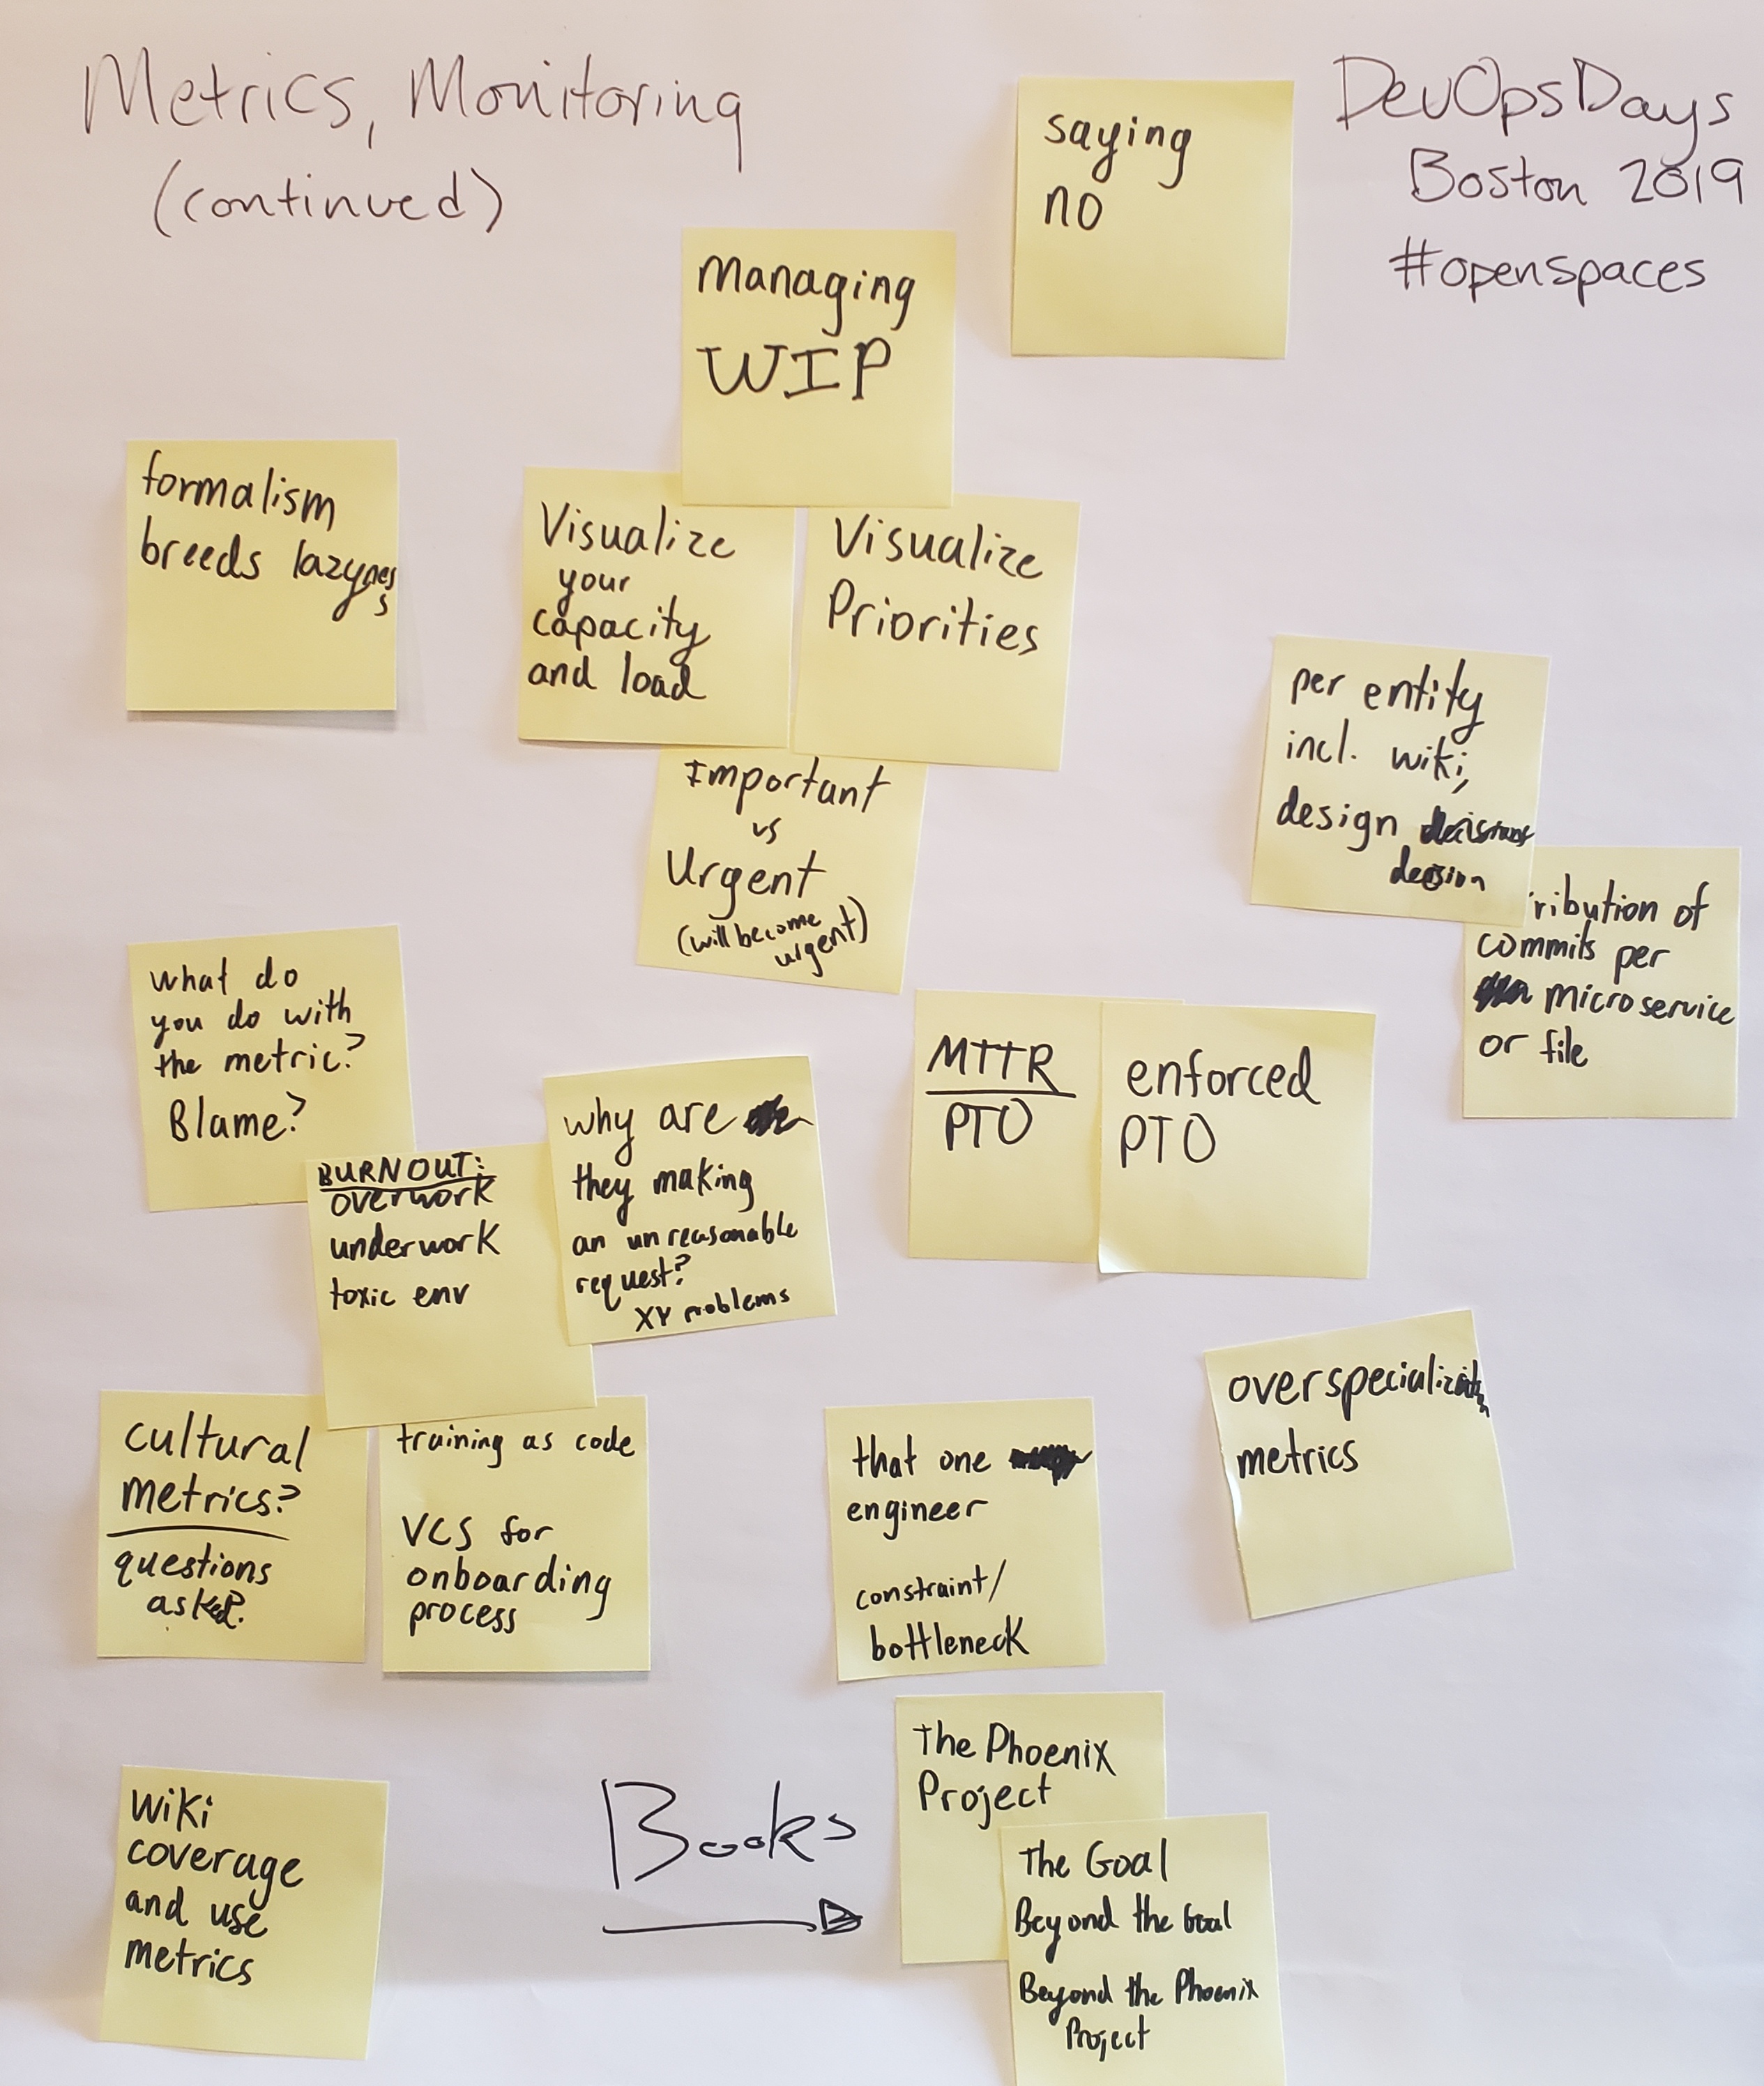 Metrics, Monitoring
(continued)
DevOpsDays
Boston 2019
#openspaces
saying
no
managing
WIP
formalism
breeds lazyness
Visualize
your
capacity
and load
Visualize
Priorities
Important
vs
Urgent
(will become
urgent)
per entity
incl. wiki,
design
decision
ribution of
commits per
microservice
or file
what do
you do with
the metric?
Blame?
BURNOUT:
overwork
underwork
toxic env
why are
they making
an unreasonable
request?
XY problems
MTTR
PTO
enforced
PTO
cultural
metrics?
questions
asked.
training as code
VCS for
onboarding
process
that one
engineer
constraint/
bottleneck
overspecialization
metrics
wiki
coverage
and use
metrics
Books
The Phoenix
Project
The Goal
Beyond the Goal
Beyond the Phoenix
Project